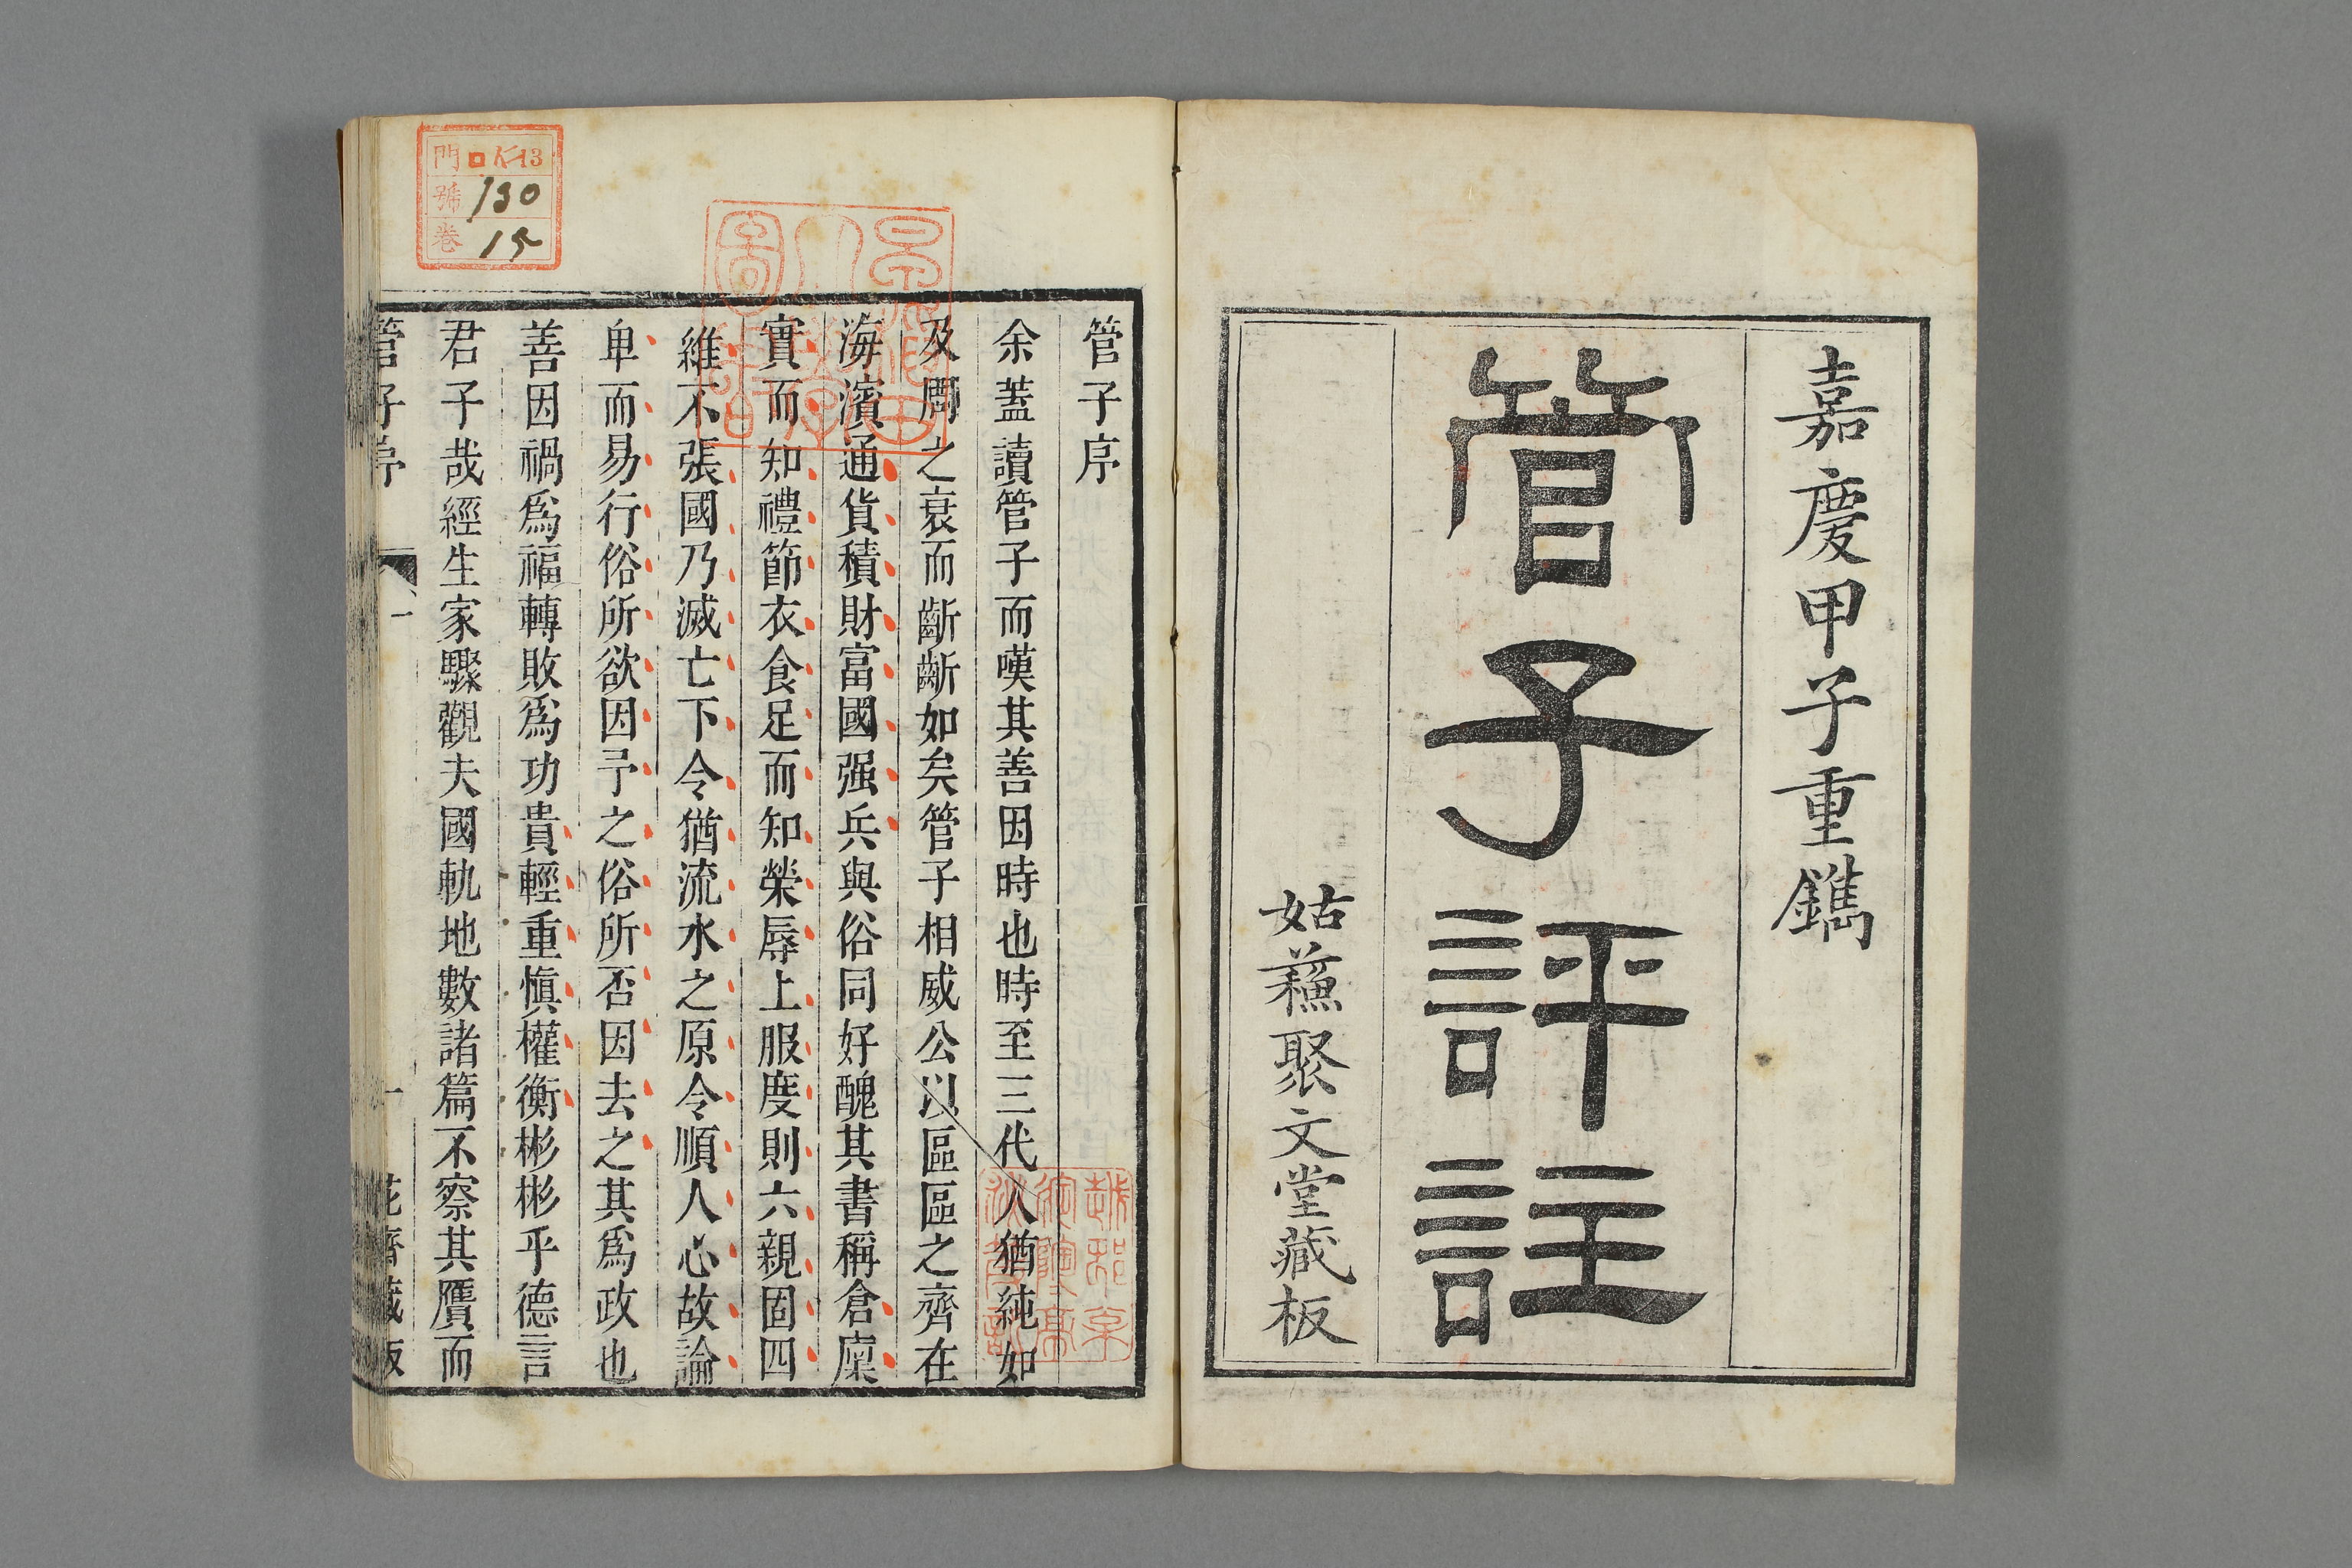 嘉慶甲子重鐫
管子評註
姑蘓聚文堂藏板
管子序
余蓋讀管子而嘆其善因時也時至三代人猶純如
及周之衰而齗齗如矣管子相威公以區區之齊在
海濱通貨積財富國强兵與俗同好醜其書稱倉廩
實而知禮節衣食足而知榮辱上服度則六親固四
維不張國乃滅亡下令猶流水之原令順人心故論
卑而易行俗所欲因予之俗所否因去之其爲政也
善因禍爲福轉敗爲功貴輕重愼權衡彬彬乎德言
君子哉經生家驟觀夫國軌地數諸篇不察其贋而
管子序 一 花齋藏板
門 13
號 130
卷 15